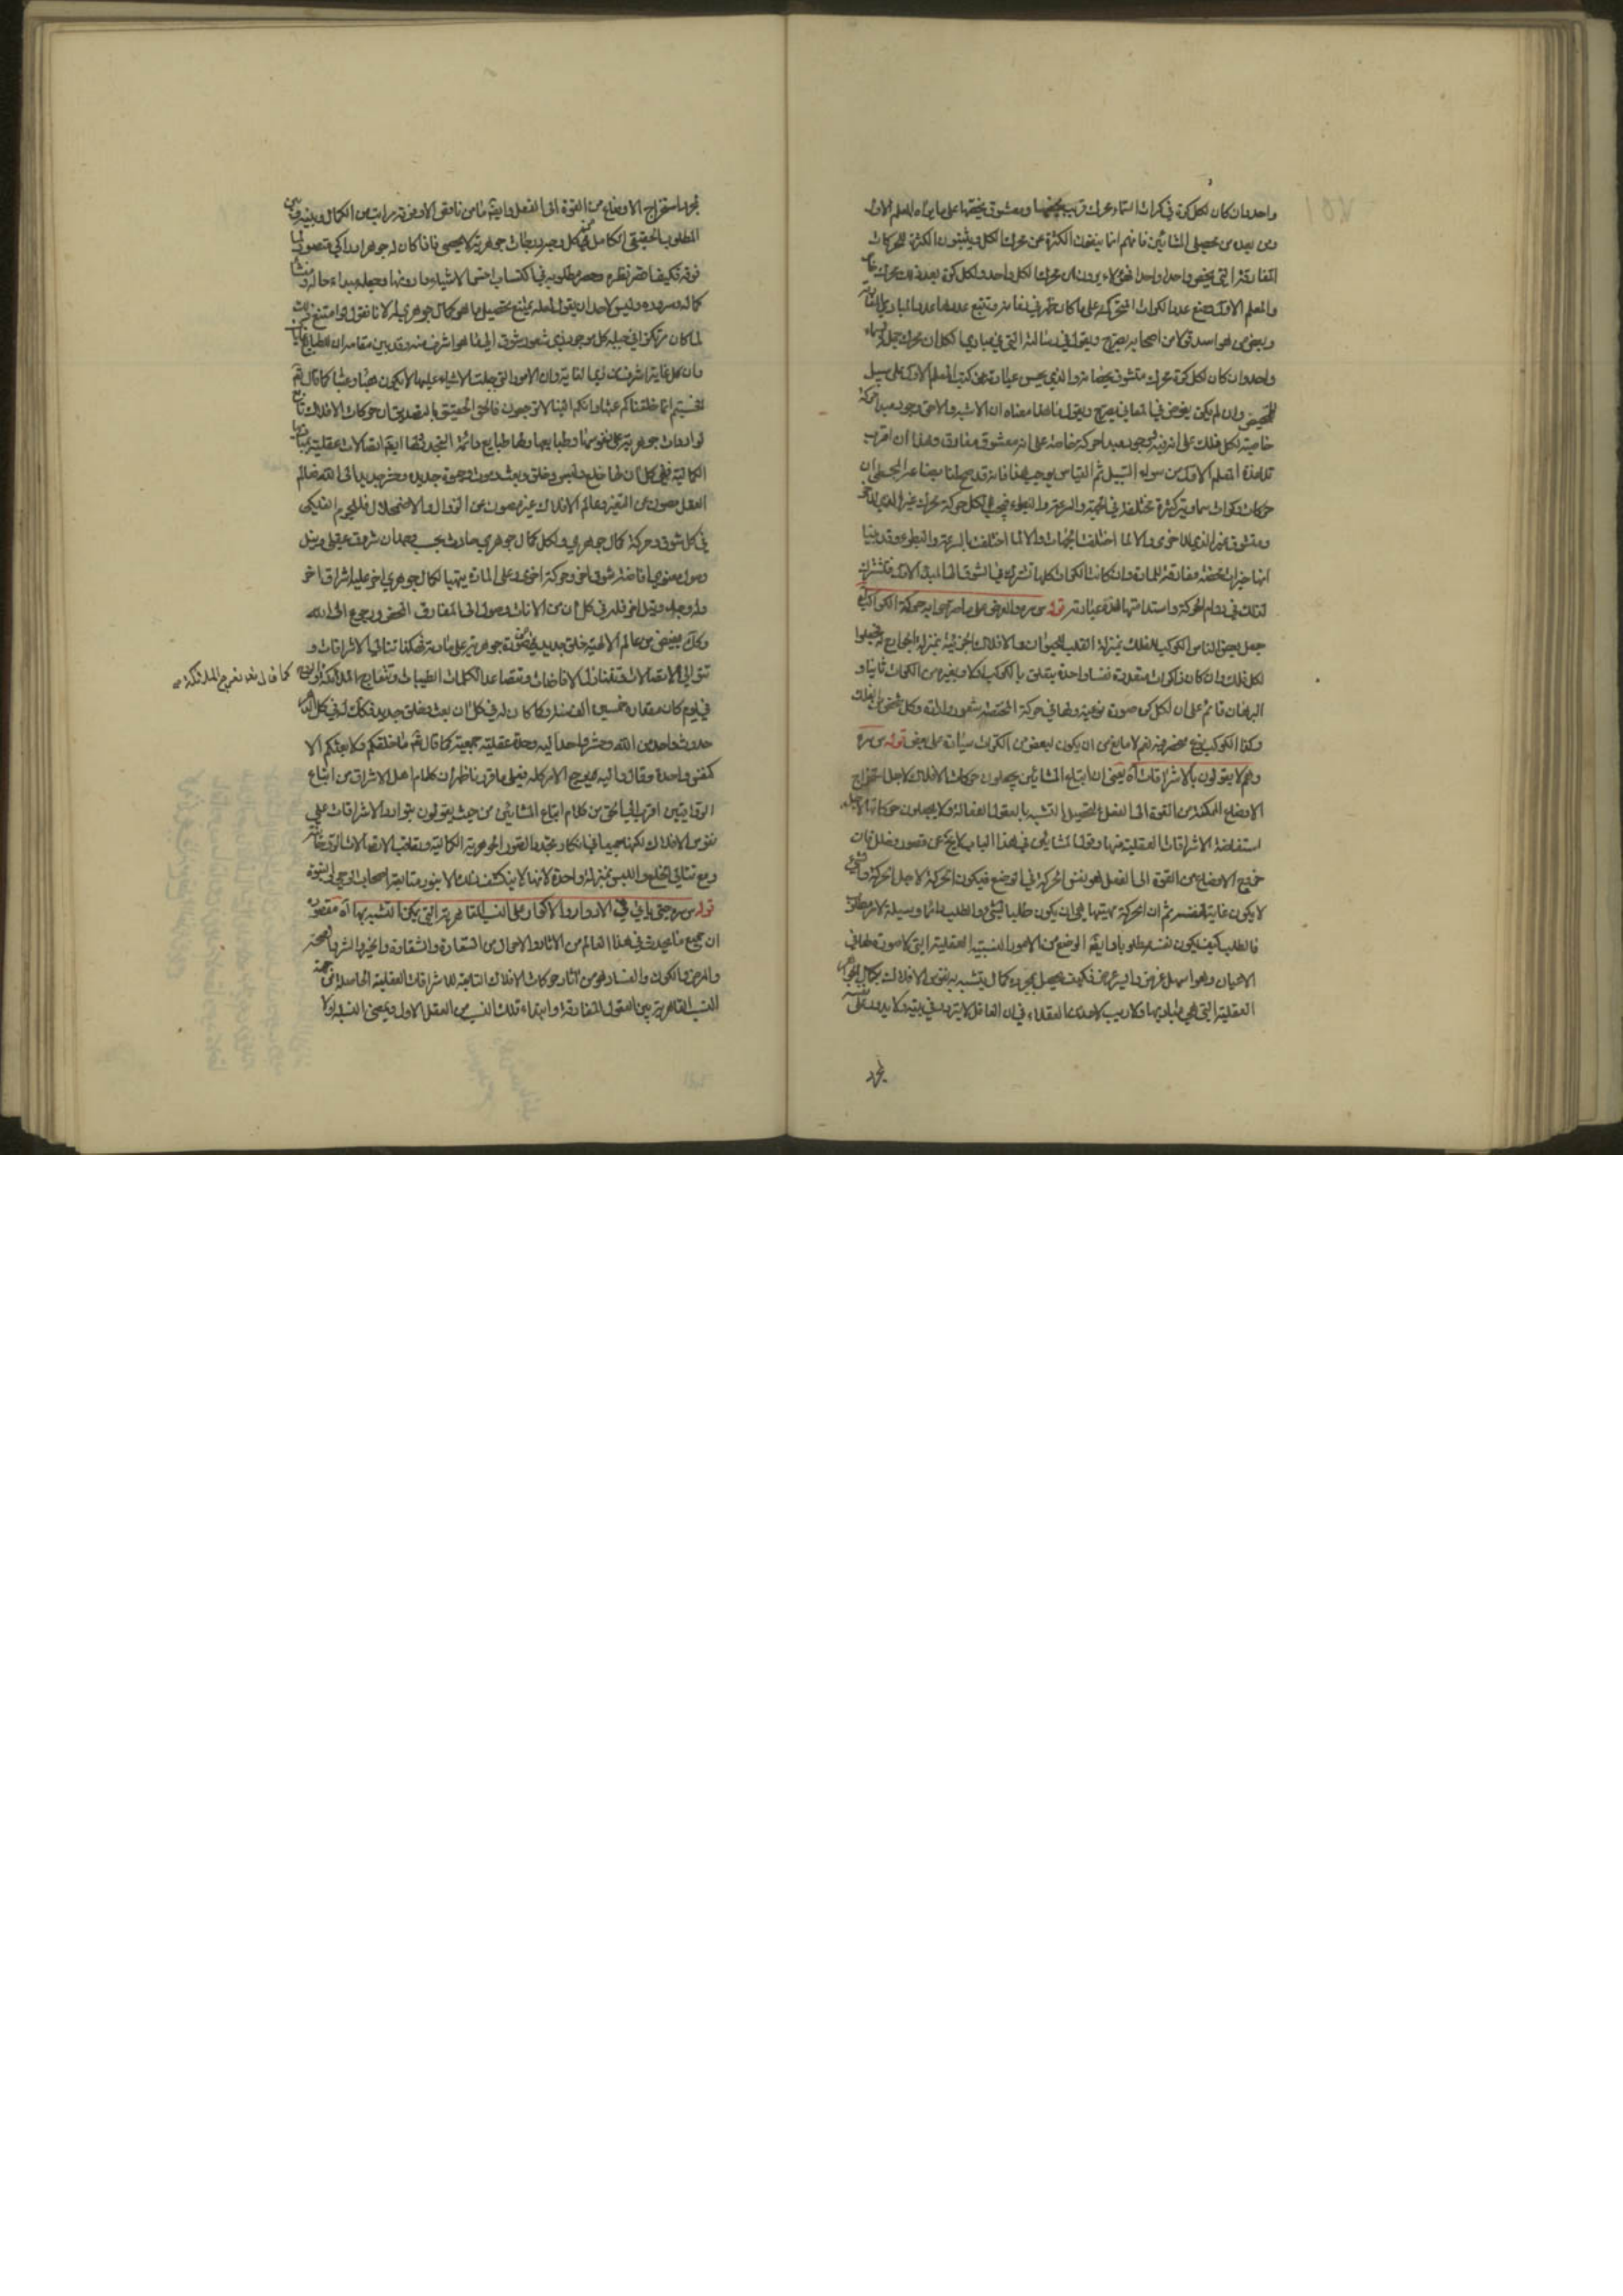 واحد وان كان لكل كرة من كرات السماء محرك قريب يخصها ومعشوق يخصها على ما يراه المعلم الاول
ومن بعده من محصلى المشائين فانهم انما ينفون الكثرة عن محرك الكل ويثبتون الكثرة للمحركات
المفارقة التى يخص واحدا واحدا فهؤلاء يرون ان محرك الكل واحد ولكل كرة بعد ذلك محرك خاص
والمعلم الاول وضع عدد الكرات المتحركة على ما كان ظهر فى زمانه وتتبع عددها عدد المبادى المفارقة
وبعض من هو اسد قولا من اصحابه يصرح ويقول فى رسالته التى فى مبادى الكل ان محرك جملة السماء
واحد وان كان لكل كرة محرك متشوق يخصانه والذى يحسن عبارته عن كتب المعلم الاول على سبيل
تلخيص وان لم يكن يغوص فى المعانى يصرح ويقول ما هذا معناه ان الاشبه والاحق وجود مبدء حركة
خاصة لكل فلك على انه فيه ووجود مبدا حركة خاصة على انه معشوق مفارق وهذان اقرب
تلامذة المعلم الاول من سواء السبيل ثم القياس يوجب هذا فانه قد صح لنا بصناعة المجسطى ان
حركات وكرات سماوية كثيرة مختلفة فى الجهة والسرعة والبطوء فيجب لكل حركة محرك غير الذى للاخر
ومتشوق غير الذى للاخرى والا لما اختلفت الجهات والا لما اختلفت السرعة والبطوء وقد بينا
انها خيرات محضة مفارقة للمادة وان كانت الكرات كلها تشترك فى الشوق الى المبدء الاول فتشترك
لذلك فى دوام الحركة واستدامتها هذه عبارته قوله س سره
جعل بعض الناس الكوكب للفلك بمنزلة القلب للحيوان والافلاك الجزئية بمنزلة الجوارح
لكل فلك وان كان ذا كرات متعددة نفسا واحدة يتعلق بالكوكب اولا وبغيره من الكرات ثانيا و
البرهان قائم على ان لكل كرة صورة نوعية ولها فى حركة المختصة شعور وارادة
وكذا الكوكب نوع منحصر فيه نعم لا مانع من ان يكون لبعض من الكرات سيادة على بعض قوله س سره
وهم لا يقولون بالاشراقات اه يعنى ان اتباع المشائين يجعلون حركات الافلاك لاجل استخراج
الاوضاع الممكنة من القوة الى الفعل لتحصيل التشبه بالعقول الفعالة ولا يجعلون حركاتها لاجل
استفاضة الاشراقات العقلية منها وقول المشائين فى هذا الباب لا يخ عن قصور وخلل فان
خروج الاوضاع من القوة الى الفعل هو نفس الحركة فى الوضع فيكون الحركة لاجل الحركة والشئ
لا يكون غاية لنفسه ثم ان الحركة مهيتها هى ان يكون طلبا لشئ والطلب دائما وسيلة لامر مطلوب
فالطلب كيف يكون نفسه مطلوبا وايضا الوضع من الامور النسبية العقلية التى لا صورة لها فى
الاعيان وهو اسهل غرض وايسر عرض فكيف يحصل بمجرده كمال يتشبه به نفوس الافلاك بكمال الجواهر
العقلية التى هى مباديها ولا ريب لاحد من العقلاء فى ان العاقل لا يتردد فى بيته ولا يدور على نفسه
بمجرد
بمجرد استخراج الاوضاع من القوة الى الفعل وايضا ما من ناقص الا وفوقه مراتب من الكمال وبينه وبين
المطلوب الحقيقى الكامل من كل وجه درجات جوهرية لا يحصى فاذا كان له جوهر ادراكى تصور لما
فوقه فكيف اقتصر نظره وحصر مطلوبه فى اكتساب اخس الاشياء وادونها وجعله مبداء حاله ومنشا
كماله وسروره وليس لاحد ان يقول لعله يمتنع تحصيل ما هو كمال جوهرى له لانا نقول لو امتنع ذلك
لما كان مرتكزا فى جبلة كل موجود ذى شعور شوق الى ما هو اشرف منه وقد بين مقامه ان للطبايع غايات
وان كل غاية اشرف من ذى الغاية وان الامور التى جبلت الاشياء عليها لا يكون هباء وعبثا كما قال تعم
افحسبتم انما خلقناكم عبثا وانكم الينا لا ترجعون فالحق الحقيق بالتصديق ان حركات الافلاك تابع
لواردات جوهرية على نفوسها وطبايعها ولها طبايع دائمة التجدد ولها ايضا اتصالات عقلية
الكمالية ففى كل ان لها خلع ولبس وخلق وبعث وموت وحيوة جديدة وحشر جديد الى الله فعالم
العقل مصون عن التغير وعالم الافلاك غير مصون عن الزوال والاضمحلال فللجرم الفلكى
فى كل شوق وحركة كمال جوهرى ولكل كمال جوهرى حادث بحسب وجدان شروق عقلى ونيل
وصول معنوى افاضة شوق اخر وحركة اخرى وعلى المادة يتهيا لكمال جوهرى اخر عليه اشراق اخر
وله وجد ونيل اخر فله فى كل ان من الانات وصول الى المفارق المحض ورجوع الى الله
وكذا يفيض من عالم الالهية خلق جديد بصورة جوهرية على مادته فهكذا تتالى الاشراقات و
تتوالى الاتصالات وتتفنن الافاضات وتتصاعد الكلمات الطيبات وتتعارج الملائكة والروح
كما قال تعم تعرج الملائكة
فى يوم كان مقداره خمسين الف سنة وكما كان له فى كل ان بعث وخلق جديد فكذلك له فى كل
حدوث واحد من الله وحشر واحد اليه وحدة عقلية جمعية كما قال تعم ما خلقكم ولا بعثكم الا
كنفس واحدة وقال واليه يرجع الامر كله فعلى ما قررنا ظهر ان كلام اهل الاشراق من اتباع
الرواقيين اقرب الى الحق من كلام اتباع المشائين من حيث يقولون بتوارد الاشراقات على
نفوس الافلاك لكنهم جميعا فى انكار تجدد الصور الجوهرية الكمالية وتعاقب الاتصالات
ومع تتالى الخلع واللبس بمنزلة واحدة لانها لا ينكشف ذلك الا بنور متابعة اصحاب الوحى والنبوة
قوله س سره حتى ياتى فى الادوار والاكوار على النسب القاهرية التى يمكن التشبه بها اه مقصوده
ان جميع ما يحدث فى هذا العالم من الاثار والاحوال من السعادة والشقاوة والخير والشر والصحة
والمرض والكون والفساد هو من اثار حركات الافلاك التابعة للاشراقات العقلية الحاصلة من جهة
النسب القاهرية بين العقول المفارقة وابتداء تلك النسب من العقل الاول